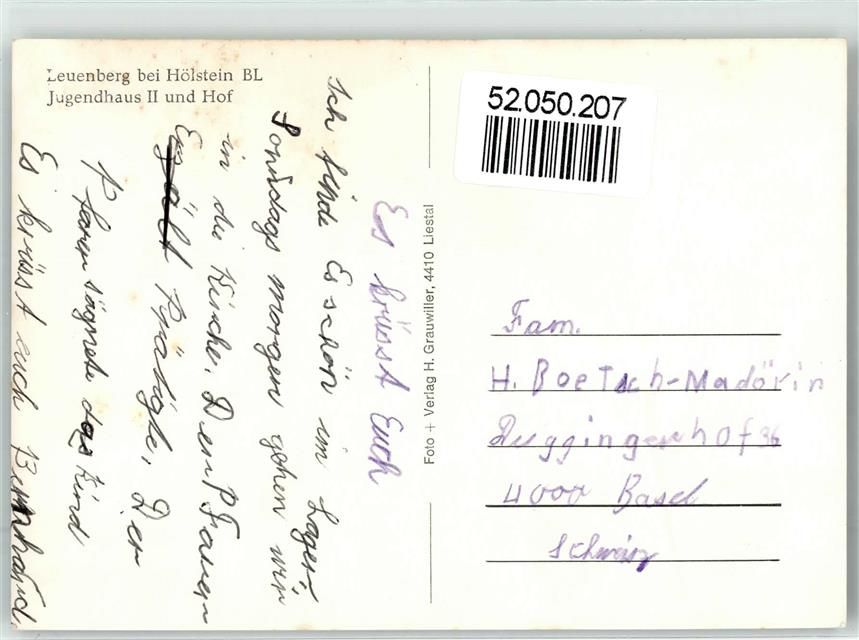 Leuenberg bei Hölstein BL
Jugendhaus II und Hof
Es krüsst Euch
Ich finde Es schön im Lager.
Sonndags morgen gehen wir
in die Kirche. Den Pfarrer
Erzält Prädigte. Der
Pfarer sägnete das Kind
Es krüsst euch Bernhard
Foto + Verlag H. Grauwiller, 4410 Liestal
52.050.207
Fam.
H. Boetsch-Madörin
Duggingerhof 36
4000 Basel
Schweiz